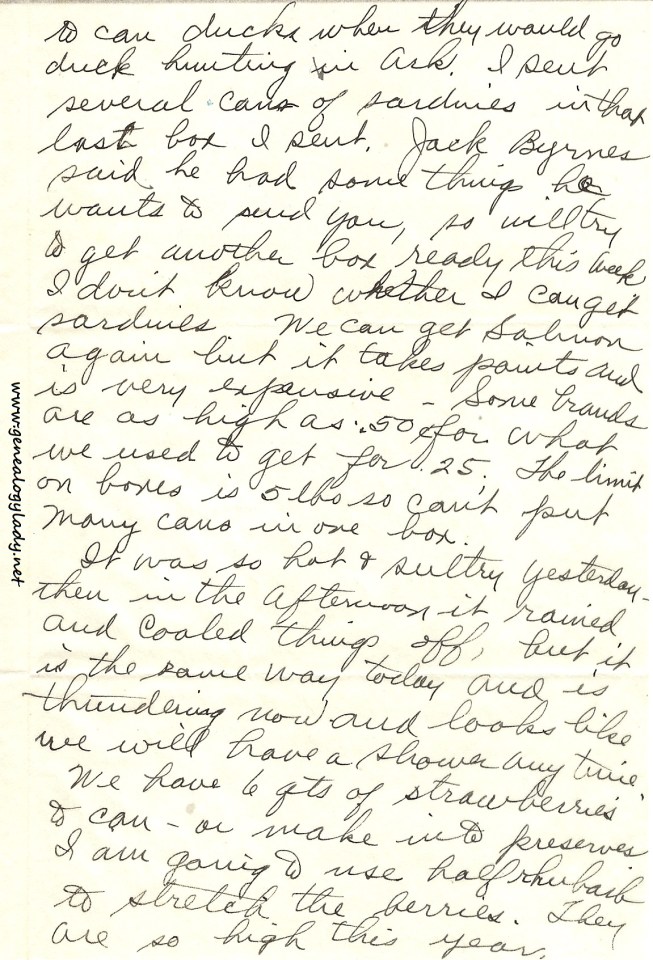 to can ducks when they would go
duck hunting in Ask. I sent
several cans of sardines in that
last box I sent. Jack Byrnes
said he had some things he
wants to send you, so will try
to get another box ready this week
I don't know whether I can get
sardines We can get Salmon
again but it takes points and
is very expensive - Some brands
are as high as .50 for what
we used to get for .25. The limit
on boxes is 5 lbs so can't put
many cans in one box.
It was so hot & sultry yesterday -
then in the afternoon it rained
and cooled things off, but it
is the same way today and is
thundering now and looks like
we will have a shower any time
We have 6 qts of strawberries
to can - or make into preserves
I am going to use half rhubarb
to stretch the berries. They
are so high this year.
www.genealogylady.net